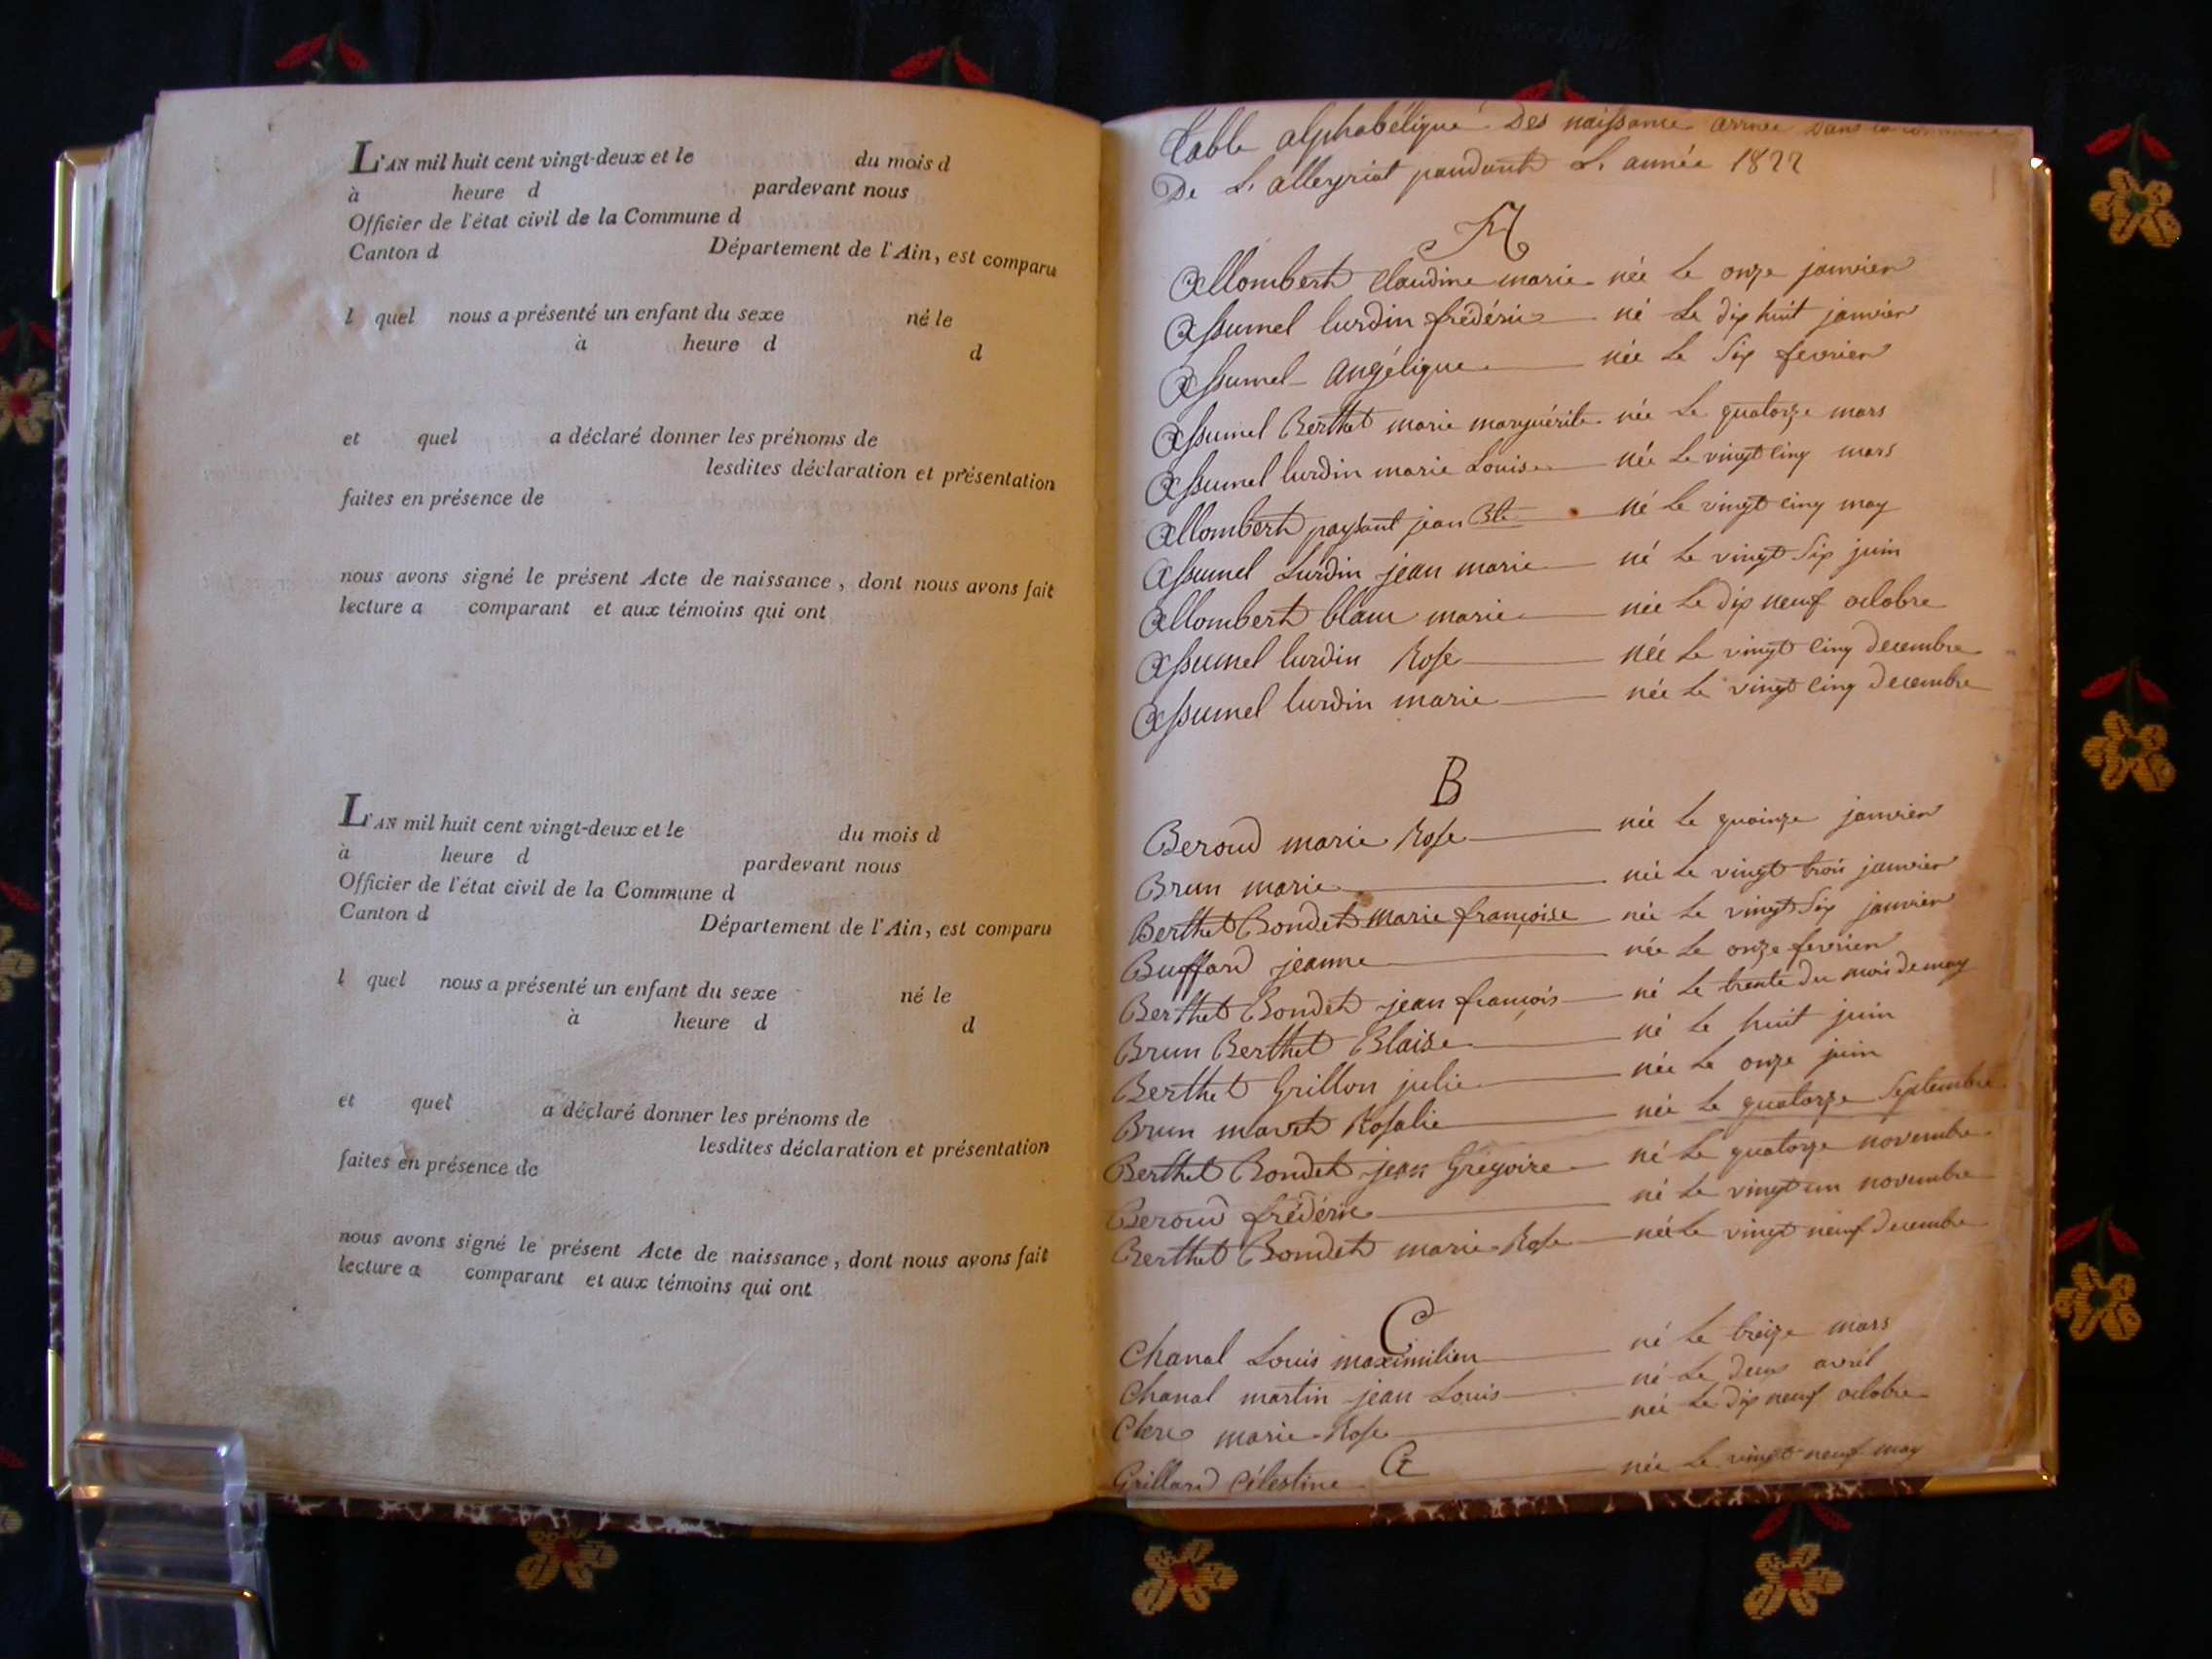 L'AN mil huit cent vingt-deux et le du mois d
à heure d pardevant nous
Officier de l'état civil de la Commune d
Canton d Département de l'Ain, est comparu
l quel nous a présenté un enfant du sexe né le
à heure d d
et quel a déclaré donner les prénoms de
lesdites déclaration et présentation
faites en présence de
nous avons signé le présent Acte de naissance, dont nous avons fait
lecture a comparant et aux témoins qui ont
L'AN mil huit cent vingt-deux et le du mois d
à heure d pardevant nous
Officier de l'état civil de la Commune d
Canton d Département de l'Ain, est comparu
l quel nous a présenté un enfant du sexe né le
à heure d d
et quel a déclaré donner les prénoms de
lesdites déclaration et présentation
faites en présence de
nous avons signé le présent Acte de naissance, dont nous avons fait
lecture a comparant et aux témoins qui ont
Table alphabétique Des naissance dans la commune
De L'alleyriat pandant L'année 1822
A
Allombert Claudine marie née Le onze janvier
Assumel lurdin frédéric né Le dix huit janvier
Assumel Angélique née Le Six fevrier
Assumel Berthet marie marguérite née Le quatorze mars
Assumel lurdin marie Louise née Le vingt cinq mars
Allombert paysant jean Bte né Le vingt cinq may
Assumel Lurdin jean marie né Le vingt Six juin
Allombert blanc marie née Le dix neuf octobre
Assumel lurdin Rose née Le vingt cinq Decembre
Assumel lurdin marie née Le vingt cinq Decembre
B
Beroud marie Rose née Le quinze janvier
Brun marie née Le vingt trois janvier
Berthet Bondet Marie françoise née Le vingt Six janvier
Buffard jeanne née Le onze fevrier
Berthet Bondet jean françois né Le trente du mois de may
Brun Berthet Blaise né Le huit juin
Berthet Grillon julie née Le onze juin
Brun maret Rosalie née Le quatorze Septembre
Berthet Bondet jean Grégoire né Le quatorze novembre
Beroud frédéric né Le vingt un novembre
Berthet Bondet marie Rose née Le vingt neuf Decembre
C
Chanal Louis maximilien né Le treize mars
Chanal martin jean Louis né Le deux avril
Clerc marie Rose née Le dix neuf octobre
G
Grillard Célestine née Le vingt neuf may